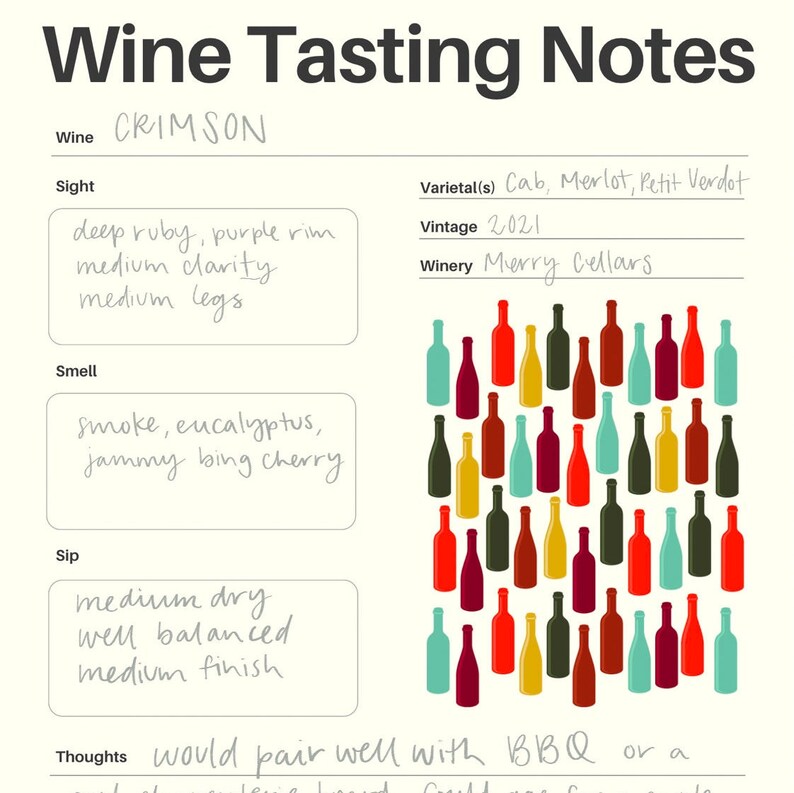 Wine Tasting Notes
Wine CRIMSON
Sight
deep ruby, purple rim
medium clarity
medium legs
Varietal(s) Cab, Merlot, Petit Verdot
Vintage 2021
Winery Merry Cellars
Smell
smoke, eucalyptus,
jammy bing cherry
Sip
medium dry
well balanced
medium finish
Thoughts would pair well with BBQ or a